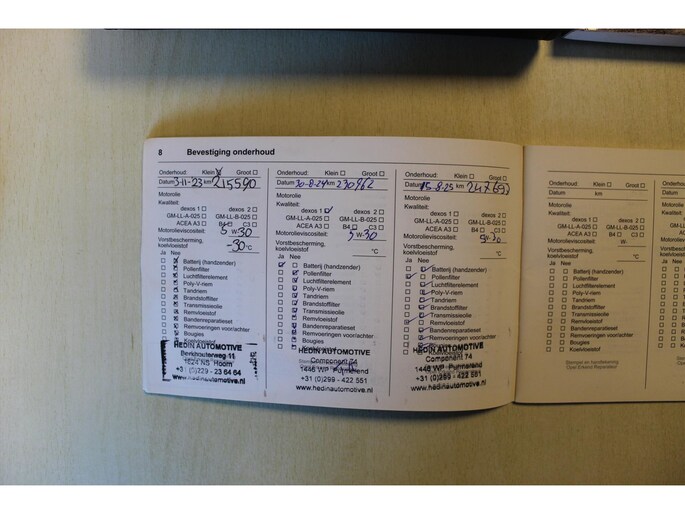 8 Bevestiging onderhoud
Onderhoud: Klein Groot
Datum 3-11-23 km 215590
Motorolie
Kwaliteit:
dexos 1 dexos 2
GM-LL-A-025 GM-LL-B-025
ACEA A3 B4 C3
Motorolieviscositeit: 5 W-30
Vorstbescherming,
koelvloeistof -30 °C
Ja Nee
Batterij (handzender)
Pollenfilter
Luchtfilterelement
Poly-V-riem
Tandriem
Brandstoffilter
Transmissieolie
Remvloeistof
Bandenreparatieset
Remvoeringen voor/achter
Bougies
Koelvloeistof
HEDIN AUTOMOTIVE
Berkhouterweg 11
1624 NS Hoorn
+31 (0)229 - 23 64 64
www.hedinautomotive.nl
Onderhoud: Klein Groot
Datum 30-8-24 km 230962
Motorolie
Kwaliteit:
dexos 1 dexos 2
GM-LL-A-025 GM-LL-B-025
ACEA A3 B4 C3
Motorolieviscositeit: 5 W-30
Vorstbescherming,
koelvloeistof °C
Ja Nee
Batterij (handzender)
Pollenfilter
Luchtfilterelement
Poly-V-riem
Tandriem
Brandstoffilter
Transmissieolie
Remvloeistof
Bandenreparatieset
Remvoeringen voor/achter
Bougies
Koelvloeistof
HEDIN AUTOMOTIVE
Component 74
1446 WP Purmerend
+31 (0)299 - 422 551
www.hedinautomotive.nl
Onderhoud: Klein Groot
Datum 15-8-25 km
Motorolie
Kwaliteit:
dexos 1 dexos 2
GM-LL-A-025 GM-LL-B-025
ACEA A3 B4 C3
Motorolieviscositeit:
Vorstbescherming,
koelvloeistof °C
Ja Nee
Batterij (handzender)
Pollenfilter
Luchtfilterelement
Poly-V-riem
Tandriem
Brandstoffilter
Transmissieolie
Remvloeistof
Bandenreparatieset
Remvoeringen voor/achter
Bougies
Koelvloeistof
HEDIN AUTOMOTIVE
Component 74
1446 WP Purmerend
+31 (0)299 - 422 551
www.hedinautomotive.nl
Onderhoud: Klein Groot
Datum km
Motorolie
Kwaliteit:
dexos 1 dexos 2
GM-LL-A-025 GM-LL-B-025
ACEA A3 B4 C3
Motorolieviscositeit: W-
Vorstbescherming,
koelvloeistof °C
Ja Nee
Batterij (handzender)
Pollenfilter
Luchtfilterelement
Poly-V-riem
Tandriem
Brandstoffilter
Transmissieolie
Remvloeistof
Bandenreparatieset
Remvoeringen voor/achter
Bougies
Koelvloeistof
Stempel en handtekening
Opel Erkend Reparateur
Ja